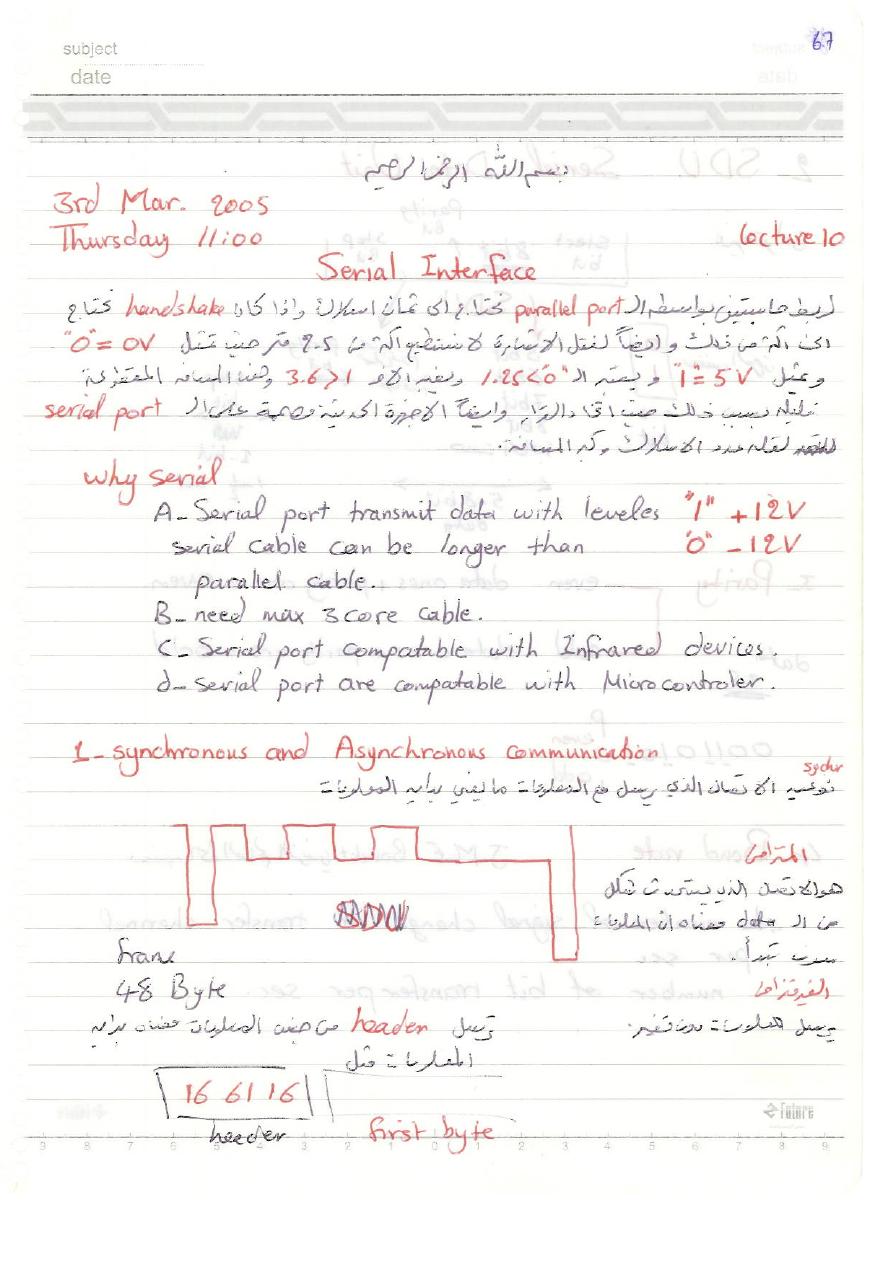 67
subject
date
بسم الله الرحمن الرحيم
3rd Mar. 2005
Thursday 11:00
Lecture 10
Serial Interface
لربط حاسبتين بواسطة الـ parallel port نحتاج الى ثمان اسلاك واذا كان handshake نحتاج
الى اكثر من ذلك وايضاً لنقل الاشارة لا نستطيع اكثر من 2.5 متر حيث تمثل "0" = 0V
وتمثل "1" = 5V ويعتبر الـ "0" > 1.25 ويعتبر الـ 1 < 3.6 وهذا المسافة
قليلة بسبب ذلك وايضاً الاجهزة الحديثة مصممة على الـ serial port
لقلة عدد الاسلاك وكبر المسافة.
why serial
A- Serial port transmit data with leveles "1" +12V
serial cable can be longer than "0" -12V
parallel cable.
B- need max 3 core cable.
C- Serial port compatable with Infrared devices.
d- serial port are compatable with Microcontroler.
1- synchronous and Asynchronous communication
الاتصال الذي يرسل مع المعلومات ما يعني بداية المعلومات
المتزامن
هو الاتصال الذي
من الـ data معناه ان المعلومات
سوف تبدأ.
frame
48 Byte
الغير متزامن
يرسل المعلومات بدون تغير.
يرسل header من ضمن المعلومات معناه بداية
المعلومات مثل
16 61 16
header
first byte
future
9 8 7 6 5 4 3 2 1 0 1 2 3 4 5 6 7 8 9